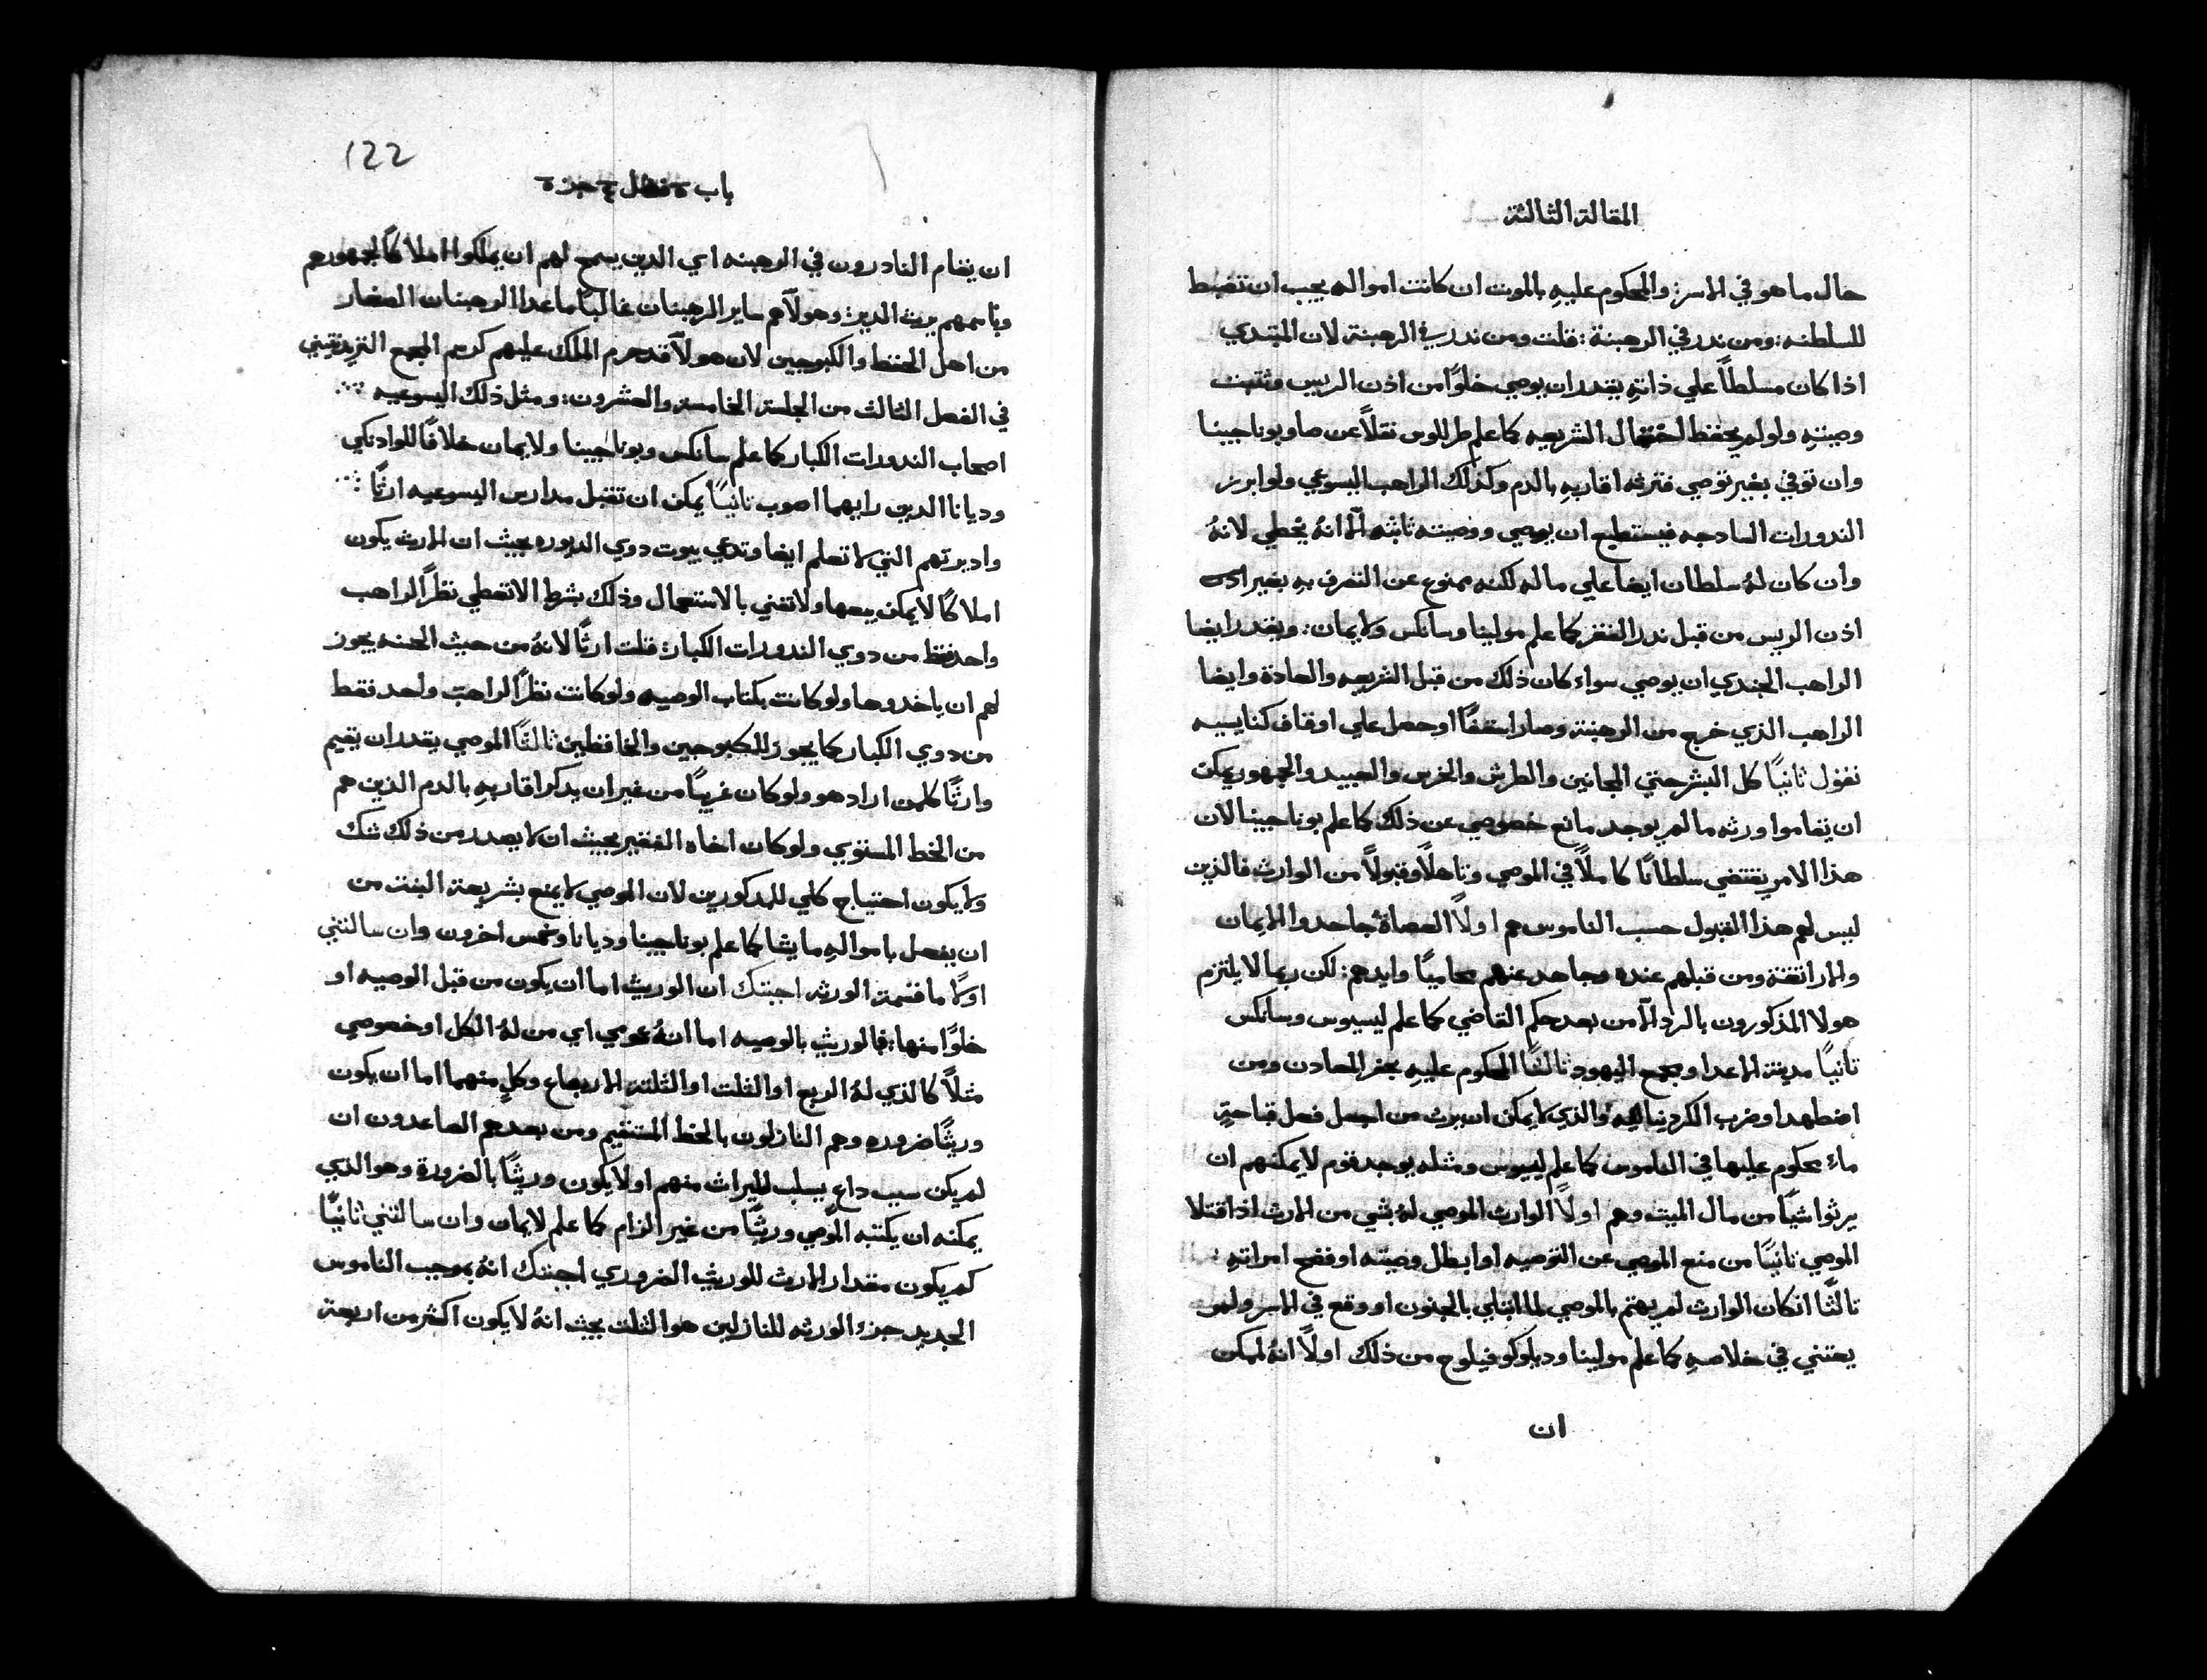 المقالة الثالثة
حال ما هو في الاسر: والمحكوم عليهِ بالموت ان كانت امواله يجب ان تضبط
للسلطنه: ومن ندر في الرهبنة: قلت ومن ندر في الرهبنة لان المبتدي
اذا كان مسلطاً علي ذاتهِ يقدر ان يوصي خلوًا من اذن الريس وتثبت
وصيتهِ ولو لم يحفظ احتفال الشريعيه كما علم طرللوس نقلاً عن صا وبوناجينا
وان توفي بغير توصي فترثه اقاربهِ بالدم وكذلك الراهب اليسوعي ولو ابرز
الندورات السادجه فيستطيع ان يوصي ووصيته ثابته الّا انهُ يخطي لانهُ
وان كان لهُ سلطان ايضا علي ماله لكنه ممنوع عن التصرف بهِ بغير
اذن الريس من قبل ندر الفقر كما علم مولينا وسانكس ولايمان: ويقدر ايضا
الراهب الجندي ان يوصي سواء كان ذلك من قبل الشريعه والعادة وايضا
الراهب الذي خرج من الرهبنة وصار اسقفًا او حصل علي اوقاف كنايسيه
نقول ثانيًا كل البشر حتي المجانين والطرش والخرس والعبيد والجمهور يمكن
ان يقاموا ورثه ما لم يوجد مانع خصوصي عن ذلك كما علم بوناجينا لان
هذا الامر يقتضي سلطانًا كاملاً في الموصي وتاهلاً وقبولاً من الوارث فالذين
ليس لهم هذا القبول حسب الناموس هم اولاً العصاة جاحدوا الايمان
والاراتقة ومن قبلهم عنده وجاهد عنهم محاميًا وايدهم: لكن ربما لا يلتزم
هولا المذكورون بالرد الّا من بعد حكم القاضي كما علم ليسيوس وسانكس
ثانيًا مدينة الاعدا ومجمع اليهود ثالثًا المحكوم عليهِ بحفر المعادن ومن
اضطهد او ضرب الكردينالية والذي لا يمكن ان يرث من اجل فعل قباحةٍ
ماء محكوم عليها في الناموس كما علم ليسيوس ومثله يوجد قوم لا يمكنهم ان
يرثوا شيًا من مال الميت وهم اولاً الوارث الموصي لهُ بشي من الارث اذا قتلا
الموصي ثانيًا من منع الموصي عن التوصيه او ابطل وصيته او فضح امراتهِ:
ثالثًا ان كان الوارث لم يهتم بالموصي لما ابتلي بالجنون او وقع في الاسر ولم
يعتني في خلاصهِ كما علم مولينا وديلوكو فيلوح من ذلك اولاً انهُ يمكن
ان
122
باب ٥ فصل ٤ جز ٥
ان يقام النادرون في الرهبنه اي الدين يسمح لهم ان يملكوا املاكًا لجمهورهم
وباسمهم يرث الدير: وهولآ هم ساير الرهبنات غالبًا ما عدا الرهبنات الصغار
من اهل الحفظ والكبوجيين لان هولآ قد حرم الملك عليهم كرسم المجمع التريدنتيني
في الفصل الثالث من الجلسة الخامسة والعشرون: ومثل ذلك اليسوعيه
اصحاب الندورات الكبار كما علم سانكس وبوناجينا ولايمان خلافًا للوادنكي
وديانا الدين رايهما اصوب ثانيًا يمكن ان تقبل مدارس اليسوعيه ارثًا
واديرتهم التي لا تعلم ايضا وتدعي بيوت دوي الديوره بحيث ان الارث يكون
املاكًا لا يمكن بيعها ولا تفني بالاستعمال وذلك بشرط الا تعطي نظرًا لراهب
واحد فقط من دوي الندورات الكبار: قلت ارثًا لانهُ من حيث الحسنه يجوز
لهم ان ياخدوها ولو كانت بكتاب الوصيه ولو كانت نظرًا لراهب واحد فقط
من دوي الكبار كما يجوز للكبوجيين والحافظين ثالثًا الموصي يقدر ان يقيم
وارثًا كلمن اراد هو ولو كان غريبًا من غير ان يدكر اقاربهِ بالدم الذين هم
من الخط المستوي ولو كان اخاه الفقير بحيث ان لا يصدر من ذلك شك
ولا يكون احتياج كلي للمدكورين لان الموصي لا يمنع بشريعة البتت من
ان يفعل باموالهِ ما يشا كما علم بوناجينا وديانا وخمس اخرون وان سالتني
اولا ما قسمة الورثه اجبتك ان الوريث اما ان يكون من قبل الوصيه او
خلوًا منها: فالوريث بالوصيه اما انهُ عمومي اي من لهُ الكل او خصوصي
مثلاً كالذي لهُ الربع او الثلت او الثلتة الارباع وكلٍ منهما اما ان يكون
وريثًا ضروره وهم النازلون بالخط المستقيم ومن بعدهم الصاعدون ان
لم يكن سبب داعٍ يسلب الميراث منهم او لا يكون وريثًا بالضرورة وهو الذي
يمكنه ان يكتبه الموصي وريثًا من غير الزام كما علم لايمان وان سالتني ثانيًا
كم يكون مقدار الارث للوريث الضروري اجبتك انهُ بموجب الناموس
الجديد جزء الورثه للنازلين هو الثلت بحيث انهُ لا يكون اكثر من اربعة